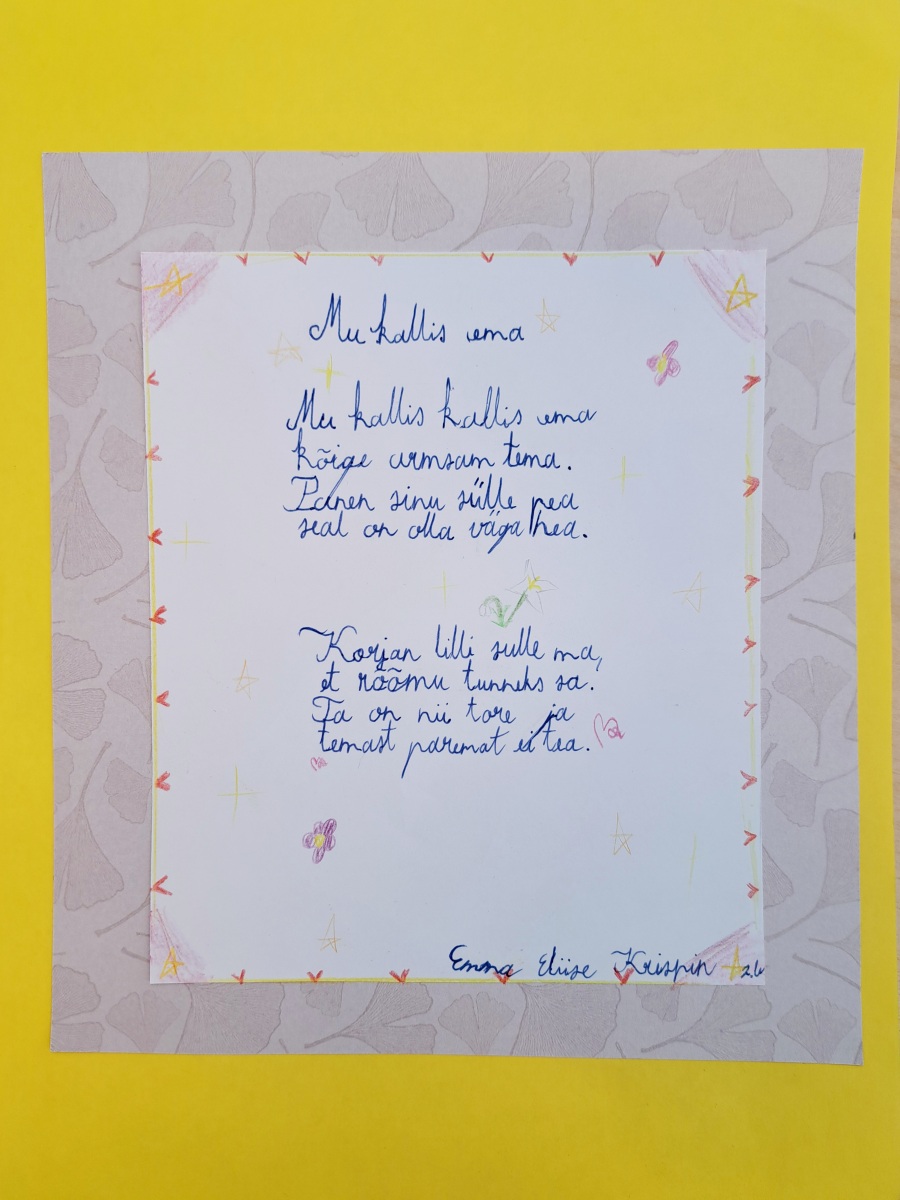 Mu kallis ema
Mu kallis kallis ema
kõige armsam tema.
Panen sinu sülle pea
seal on olla väga hea.
Korjan lilli sulle ma,
et rõõmu tunneks sa.
Ta on nii tore ja
temast paremat ei tea.
Emma Eliise Krispin 2.b